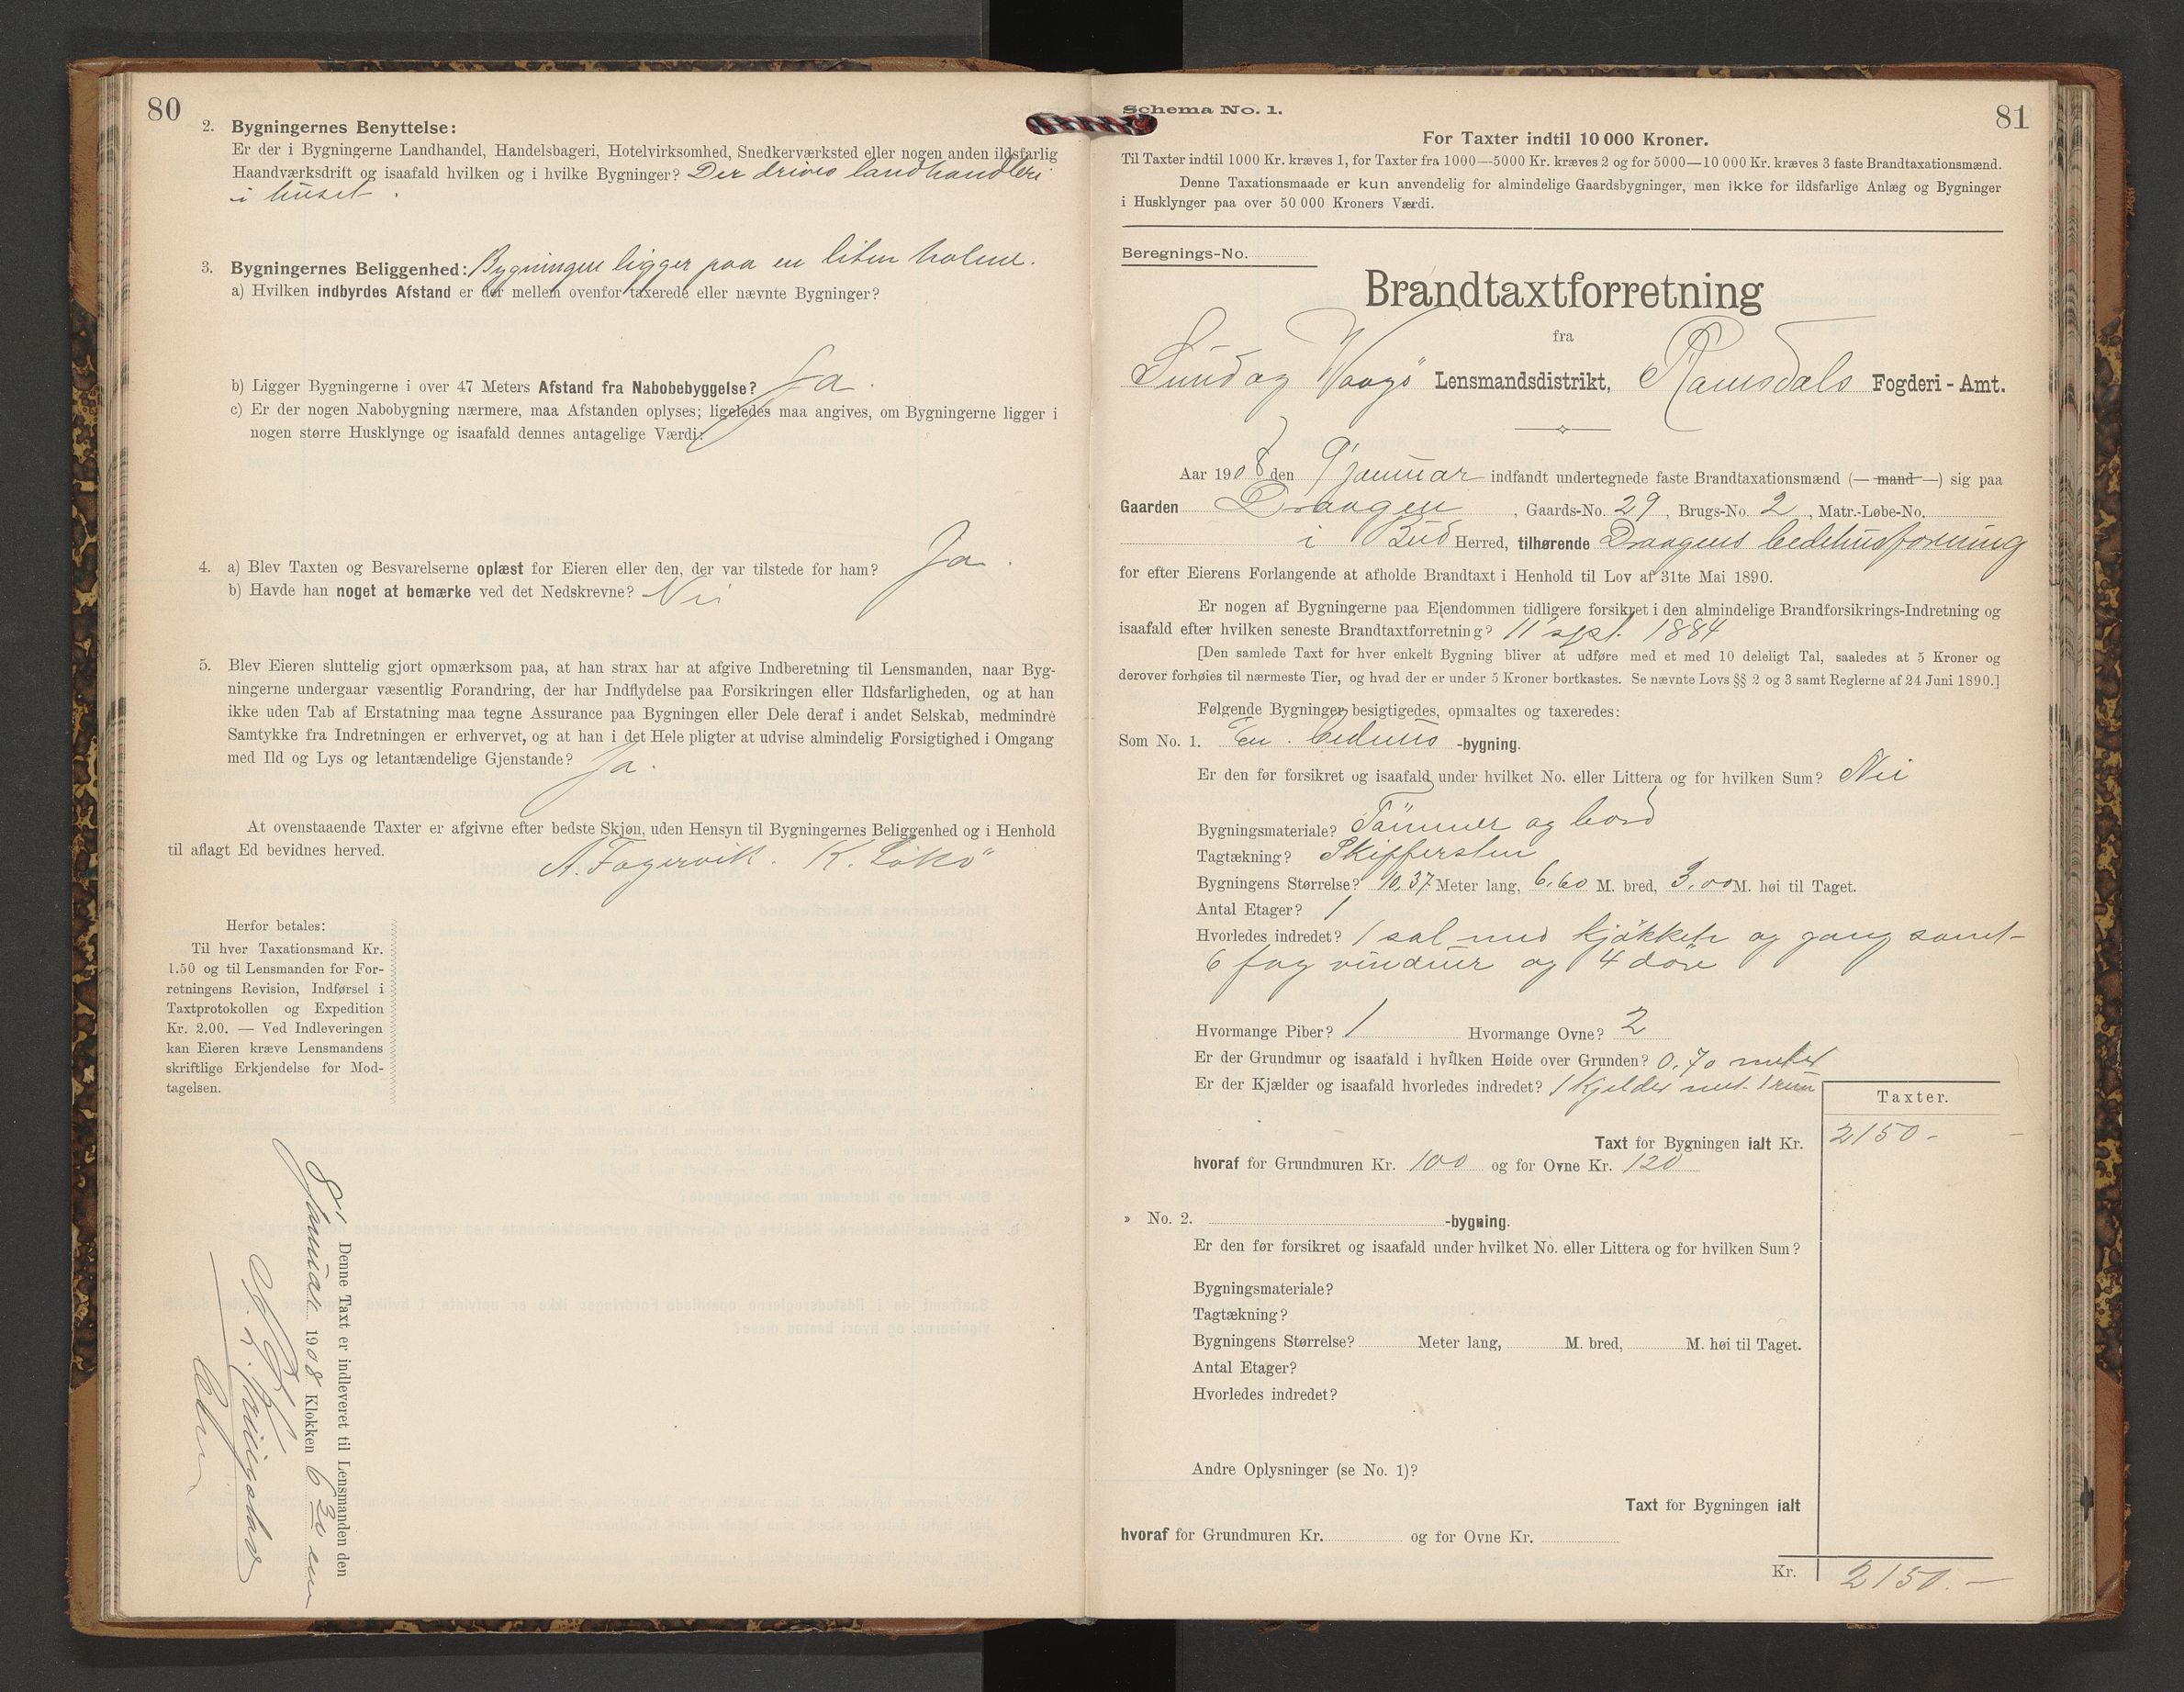 80
2. Bygningernes Benyttelse:
Er der i Bygningerne Landhandel, Handelsbageri, Hotelvirksomhed, Snedkerværksted eller nogen anden ildsfarlig
Haandværksdrift og isaafald hvilken og i hvilke Bygninger? Der drives landhandleri
i huset.
3. Bygningernes Beliggenhed: Bygningen ligger paa en liten holme.
a) Hvilken indbyrdes Afstand er der mellem ovenfor taxerede eller nævnte Bygninger?
b) Ligger Bygningerne i over 47 Meters Afstand fra Nabobebyggelse? Ja.
c) Er der nogen Nabobygning nærmere, maa Afstanden oplyses; ligeledes maa angives, om Bygningerne ligger i
nogen større Husklynge og isaafald dennes antagelige Værdi:
4. a) Blev Taxten og Besvarelserne oplæst for Eieren eller den, der var tilstede for ham? Ja.
b) Havde han noget at bemærke ved det Nedskrevne? Nei
5. Blev Eieren sluttelig gjort opmærksom paa, at han strax har at afgive Indberetning til Lensmanden, naar Byg-
ningerne undergaar væsentlig Forandring, der har Indflydelse paa Forsikringen eller Ildsfarligheden, og at han
ikke uden Tab af Erstatning maa tegne Assurance paa Bygningen eller Dele deraf i andet Selskab, medmindre
Samtykke fra Indretningen er erhvervet, og at han i det Hele pligter at udvise almindelig Forsigtighed i Omgang
med Ild og Lys og letantændelige Gjenstande? Ja.
At ovenstaaende Taxter er afgivne efter bedste Skjøn, uden Hensyn til Bygningernes Beliggenhed og i Henhold
til aflagt Ed bevidnes herved.
A. Fagervik. K. Løkø
Herfor betales:
Til hver Taxationsmand Kr.
1.50 og til Lensmanden for For-
retningens Revision, Indførsel i
Taxtprotokollen og Expedition
Kr. 2.00. — Ved Indleveringen
kan Eieren kræve Lensmandens
skriftlige Erkjendelse for Mod-
tagelsen.
Denne Taxt er indleveret til Lensmanden den
9' Januar 1908 Klokken 6 30 em
81
Schema No. 1.
For Taxter indtil 10 000 Kroner.
Til Taxter indtil 1000 Kr. kræves 1, for Taxter fra 1000—5000 Kr. kræves 2 og for 5000—10 000 Kr. kræves 3 faste Brandtaxationsmænd.
Denne Taxationsmaade er kun anvendelig for almindelige Gaardsbygninger, men ikke for ildsfarlige Anlæg og Bygninger
i Husklynger paa over 50 000 Kroners Værdi.
Beregnings-No.
Brandtaxtforretning
fra
Sund og Vaagø Lensmandsdistrikt, Ramsdals Fogderi - Amt.
Aar 1908 den 9' januar indfandt undertegnede faste Brandtaxationsmænd (— mand —) sig paa
Gaarden Draagen, Gaards-No. 29, Brugs-No. 2, Matr.-Løbe-No.
i Bud Herred, tilhørende Draagens bedehusforening
for efter Eierens Forlangende at afholde Brandtaxt i Henhold til Lov af 31te Mai 1890.
Er nogen af Bygningerne paa Ejendommen tidligere forsikret i den almindelige Brandforsikrings-Indretning og
isaafald efter hvilken seneste Brandtaxtforretning? 11' sept. 1884
[Den samlede Taxt for hver enkelt Bygning bliver at udføre med et med 10 deleligt Tal, saaledes at 5 Kroner og
derover forhøies til nærmeste Tier, og hvad der er under 5 Kroner bortkastes. Se nævnte Lovs §§ 2 og 3 samt Reglerne af 24 Juni 1890.]
Følgende Bygninger besigtigedes, opmaaltes og taxeredes:
Som No. 1. En. bedehus -bygning.
Er den før forsikret og isaafald under hvilket No. eller Littera og for hvilken Sum? Nei
Bygningsmateriale? Tømmer og bord
Tagtækning? Skiffersten
Bygningens Størrelse? 10,37 Meter lang, 6,60 M. bred, 3,00 M. høi til Taget.
Antal Etager? 1
Hvorledes indredet? 1 sal med kjøkken og gang samt
6 fag vinduer og 4 døre
Hvormange Piber? 1 Hvormange Ovne? 2
Er der Grundmur og isaafald i hvilken Høide over Grunden? 0,70 meter
Er der Kjælder og isaafald hvorledes indredet? 1 kjelder med 1 rum
Taxter.
Taxt for Bygningen ialt Kr. 2150 -
hvoraf for Grundmuren Kr. 100 og for Ovne Kr. 120
» No. 2. -bygning.
Er den før forsikret og isaafald under hvilket No. eller Littera og for hvilken Sum?
Bygningsmateriale?
Tagtækning?
Bygningens Størrelse? Meter lang, M. bred, M. høi til Taget.
Antal Etager?
Hvorledes indredet?
Andre Oplysninger (se No. 1)?
Taxt for Bygningen ialt
hvoraf for Grundmuren Kr. og for Ovne Kr.
Kr. 2150. —